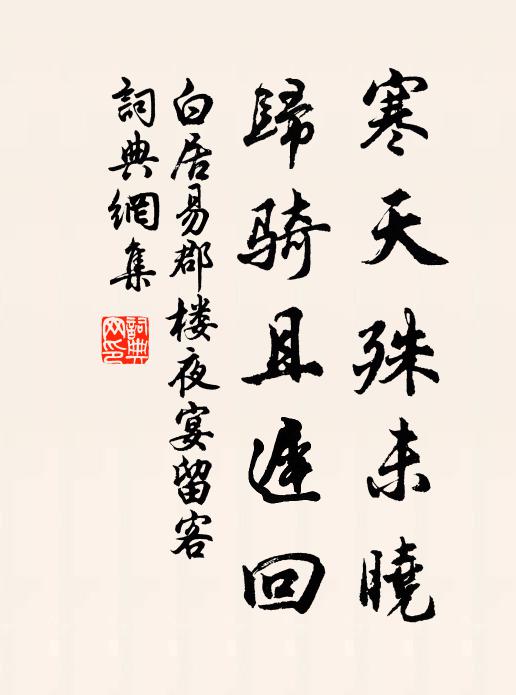 寒天殊未曉
歸骑且遲回
白居易郡楼夜宴留客
詞典網集
詞典网印